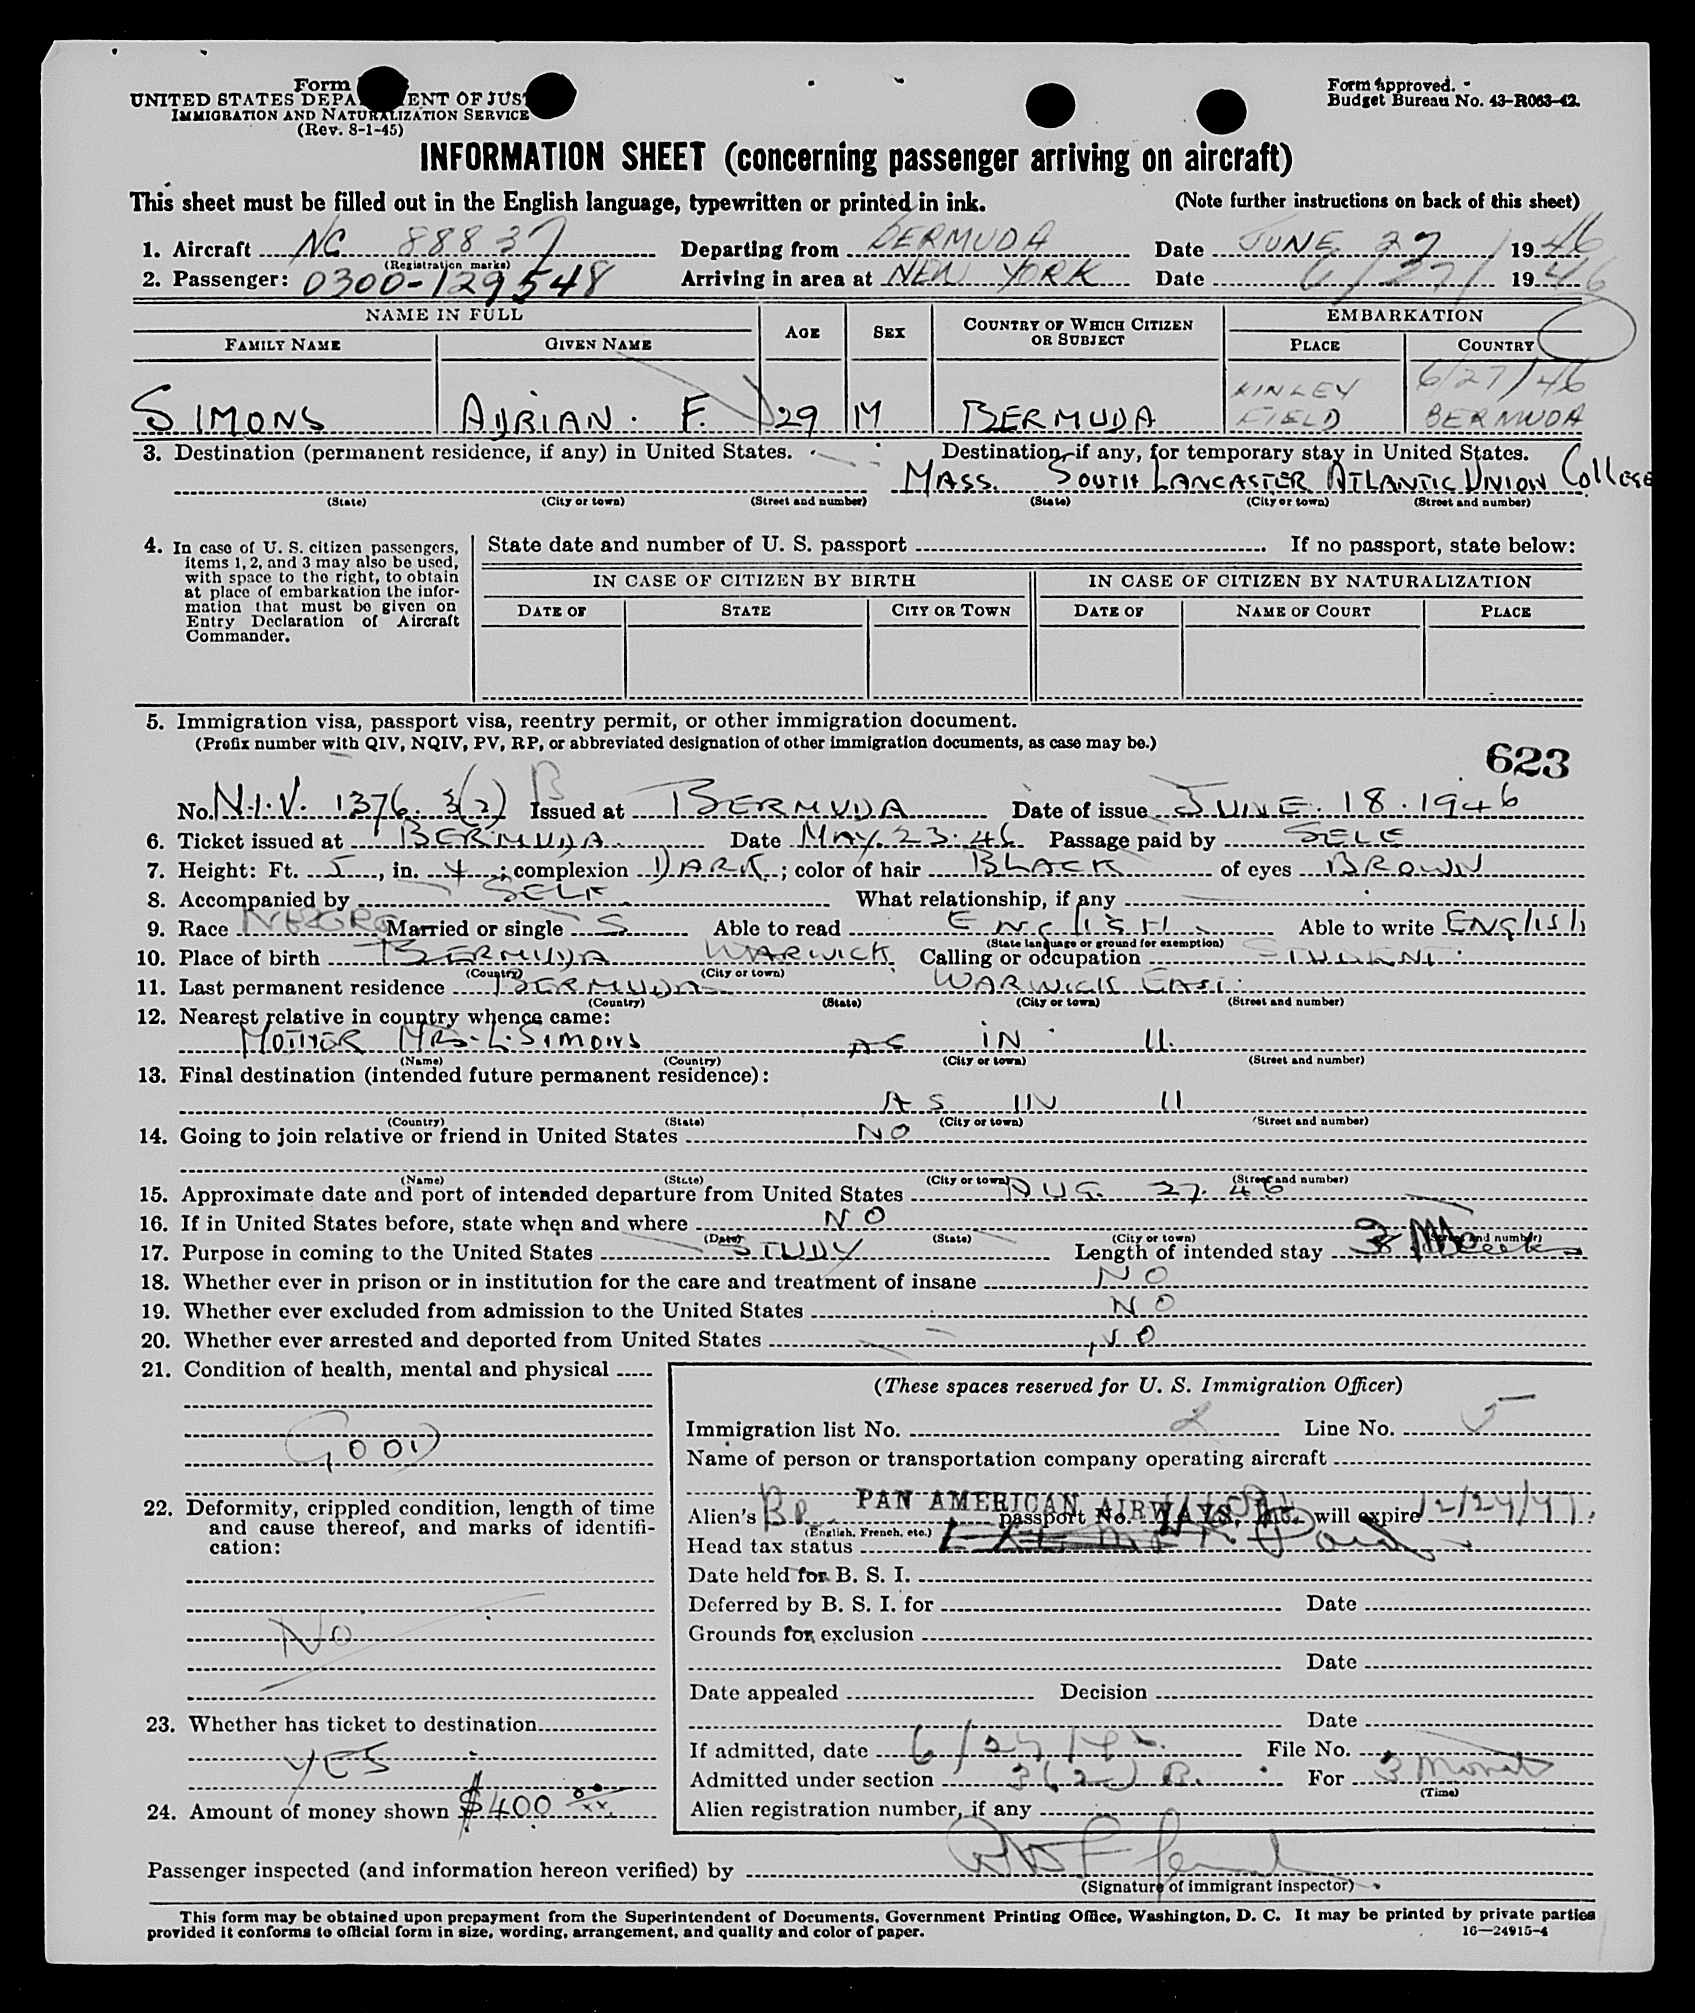 Form
UNITED STATES DEPA ENT OF JUS
IMMIGRATION AND NATURALIZATION SERVICE
(Rev. 8-1-45)
Form approved.
Budget Bureau No. 43-R063-42.
INFORMATION SHEET (concerning passenger arriving on aircraft)
This sheet must be filled out in the English language, typewritten or printed in ink. (Note further instructions on back of this sheet)
1. Aircraft NC 88837 Departing from BERMUDA Date JUNE 27 1946
(Registration marks)
2. Passenger: 0300-129548 Arriving in area at NEW YORK Date 6/27/ 1946
NAME IN FULL AGE SEX COUNTRY OF WHICH CITIZEN OR SUBJECT EMBARKATION
FAMILY NAME GIVEN NAME PLACE COUNTRY
6/27/46
SIMONS ADRIAN. F. 29 M BERMUDA KINLEY FIELD BERMUDA
3. Destination (permanent residence, if any) in United States. Destination, if any, for temporary stay in United States.
MASS. SOUTH LANCASTER ATLANTIC UNION COLLEGE
(State) (City or town) (Street and number) (State) (City or town) (Street and number)
4. In case of U. S. citizen passengers, items 1, 2, and 3 may also be used, with space to the right, to obtain at place of embarkation the information that must be given on Entry Declaration of Aircraft Commander.
State date and number of U. S. passport If no passport, state below:
IN CASE OF CITIZEN BY BIRTH IN CASE OF CITIZEN BY NATURALIZATION
DATE OF STATE CITY OR TOWN DATE OF NAME OF COURT PLACE
5. Immigration visa, passport visa, reentry permit, or other immigration document.
(Prefix number with QIV, NQIV, PV, RP, or abbreviated designation of other immigration documents, as case may be.)
623
No. N.I.V. 1376. 3(2) B Issued at BERMUDA Date of issue JUNE. 18. 1946
6. Ticket issued at BERMUDA. Date MAY. 23. 46 Passage paid by SELF
7. Height: Ft. 5, in. 4; complexion DARK; color of hair BLACK of eyes BROWN
8. Accompanied by SELF What relationship, if any
9. Race NEGRO Married or single S Able to read ENGLISH Able to write ENGLISH
(State language or ground for exemption)
10. Place of birth BERMUDA WARWICK Calling or occupation STUDENT
(Country) (City or town)
11. Last permanent residence BERMUDA WARWICK EAST.
(Country) (State) (City or town) (Street and number)
12. Nearest relative in country whence came:
MOTHER MRS. L. SIMONS AS IN 11.
(Name) (Country) (City or town) (Street and number)
13. Final destination (intended future permanent residence):
AS IN 11
(Country) (State) (City or town) (Street and number)
14. Going to join relative or friend in United States NO
(Name) (State) (City or town) (Street and number)
15. Approximate date and port of intended departure from United States AUG. 27. 46
16. If in United States before, state when and where NO
(Date) (State) (City or town) (Street and number)
17. Purpose in coming to the United States STUDY Length of intended stay 3 Mo
18. Whether ever in prison or in institution for the care and treatment of insane NO
19. Whether ever excluded from admission to the United States NO
20. Whether ever arrested and deported from United States NO
21. Condition of health, mental and physical
GOOD
22. Deformity, crippled condition, length of time and cause thereof, and marks of identification:
NO
23. Whether has ticket to destination
YES
24. Amount of money shown $400 00/xx
(These spaces reserved for U. S. Immigration Officer)
Immigration list No. 2 Line No. 5
Name of person or transportation company operating aircraft
PAN AMERICAN AIRWAYS, Inc.
Alien's Br. passport No. will expire 12/24/47
(English, French, etc.)
Head tax status Paid
Date held for B. S. I.
Deferred by B. S. I. for Date
Grounds for exclusion
Date
Date appealed Decision
Date
If admitted, date 6/27/46 File No.
Admitted under section 3(2) B. For 3 Months
(Time)
Alien registration number, if any
Passenger inspected (and information hereon verified) by
(Signature of immigrant inspector)
This form may be obtained upon prepayment from the Superintendent of Documents, Government Printing Office, Washington, D. C. It may be printed by private parties
provided it conforms to official form in size, wording, arrangement, and quality and color of paper. 16—24915-4